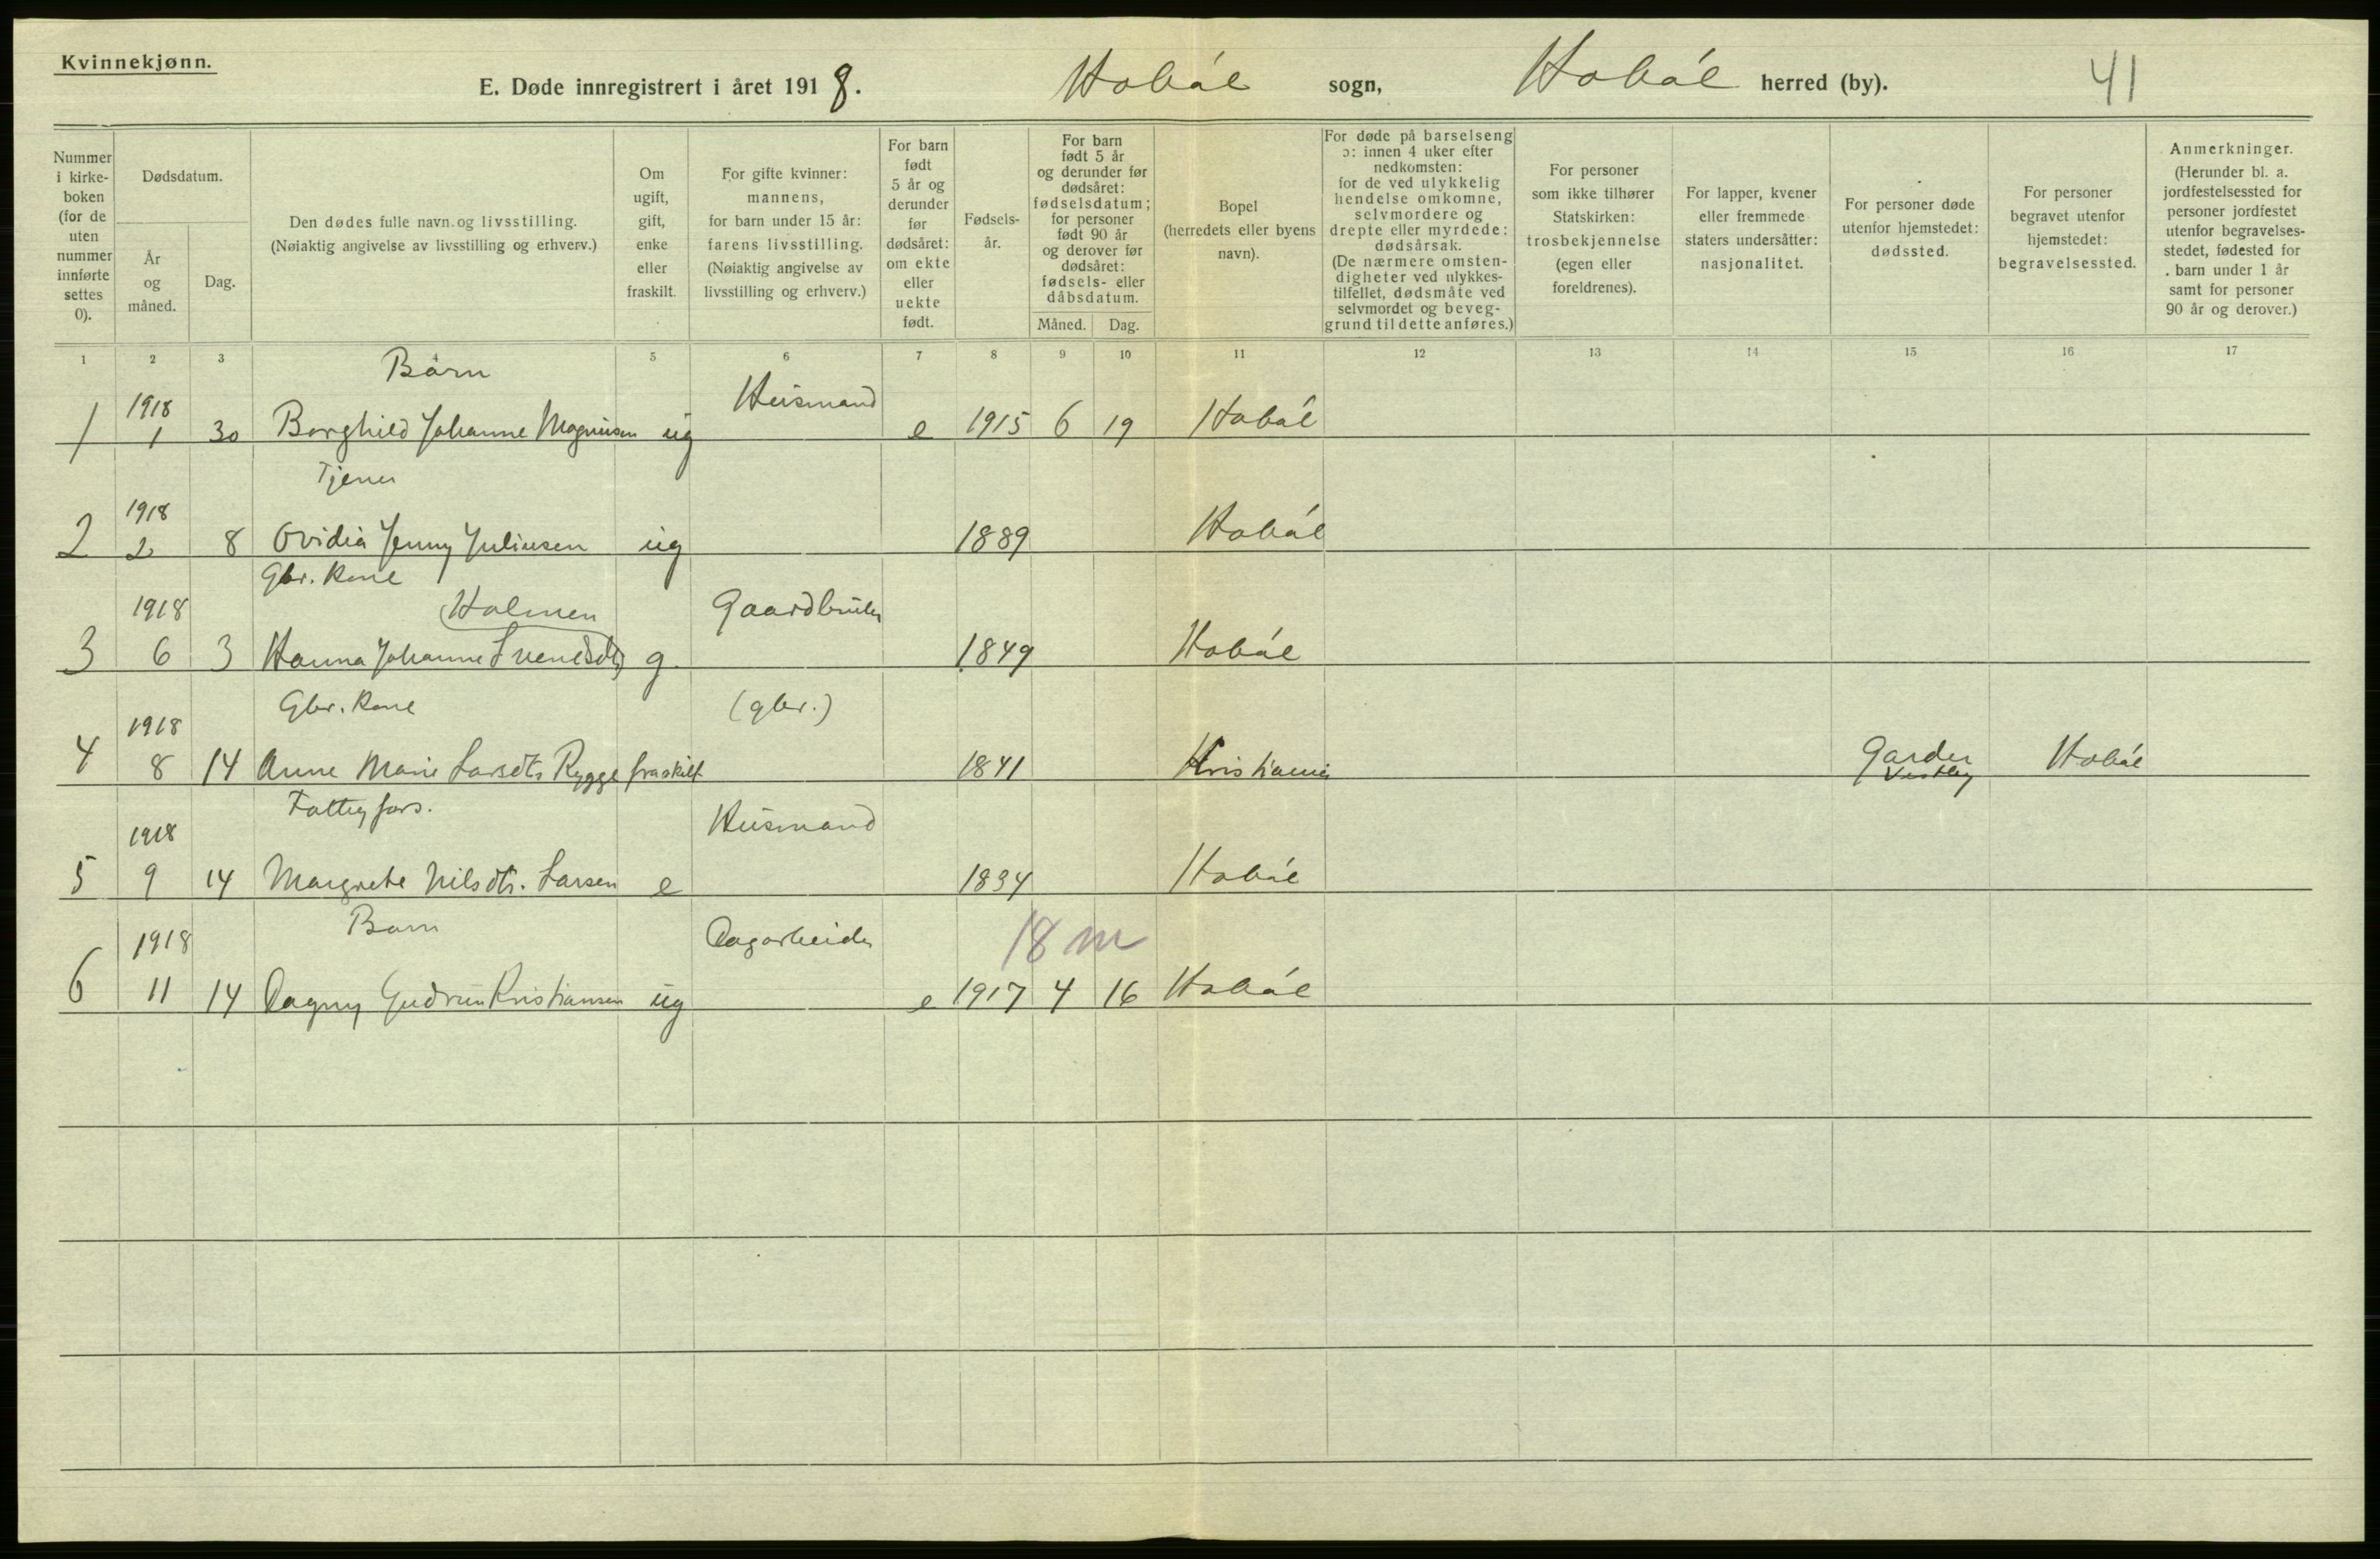 Kvinnekjønn.
E. Døde innregistrert i året 1918. Hobøl sogn, Hobøl herred (by). 41
Nummer i kirke- boken (for de uten nummer innførte settes 0).
Dødsdatum.
År og måned.
Dag.
Den dødes fulle navn og livsstilling.
(Nøiaktig angivelse av livsstilling og erhverv.)
Om ugift, gift, enke eller fraskilt.
For gifte kvinner: mannens, for barn under 15 år: farens livsstilling. (Nøiaktig angivelse av livsstilling og erhverv.)
For barn født 5 år og derunder før dødsåret: om ekte eller uekte født.
Fødsels- år.
For barn født 5 år og derunder før dødsåret: fødselsdatum; for personer født 90 år og derover før dødsåret: fødsels- eller dåbsdatum.
Måned. Dag.
Bopel (herredets eller byens navn).
For døde på barselseng ɔ: innen 4 uker efter nedkomsten: for de ved ulykkelig hendelse omkomne, selvmordere og drepte eller myrdede: dødsårsak. (De nærmere omsten- digheter ved ulykkes- tilfellet, dødsmåte ved selvmordet og beveg- grund til dette anføres.)
For personer som ikke tilhører Statskirken: trosbekjennelse (egen eller foreldrenes).
For lapper, kvener eller fremmede staters undersåtter: nasjonalitet.
For personer døde utenfor hjemstedet: dødssted.
For personer begravet utenfor hjemstedet: begravelsessted.
Anmerkninger. (Herunder bl. a. jordfestelsessted for personer jordfestet utenfor begravelses- stedet, fødested for barn under 1 år samt for personer 90 år og derover.)
1 2 3 5 6 7 8 9 10 11 12 13 14 15 16 17
Barn
1918 Husmand
1 1 30 Borghild Johanne Magnusen ug e 1915 6 19 Hobøl
Tjener
1918
2 2 8 Ovidia Jenny Juliusen ug 1889 Hobøl
Gbr. Kone
1918 Holmen Gaardbruker
3 6 3 Hanna Johanne Svendsdtr g. 1849 Hobøl
Gbr. Kone (gbr.)
1918
4 8 14 Anne Marie Larsdtr Rygge fraskilt 1841 Kristiania Garder Vestby Hobøl
Fattigfors. Husmand
1918
5 9 14 Margrete Nilsdtr. Larsen e 1834 Hobøl
Barn Dagarbeider
1918 18 m
6 11 14 Dagny Gudrun Kristiansen ug e 1917 4 16 Hobøl